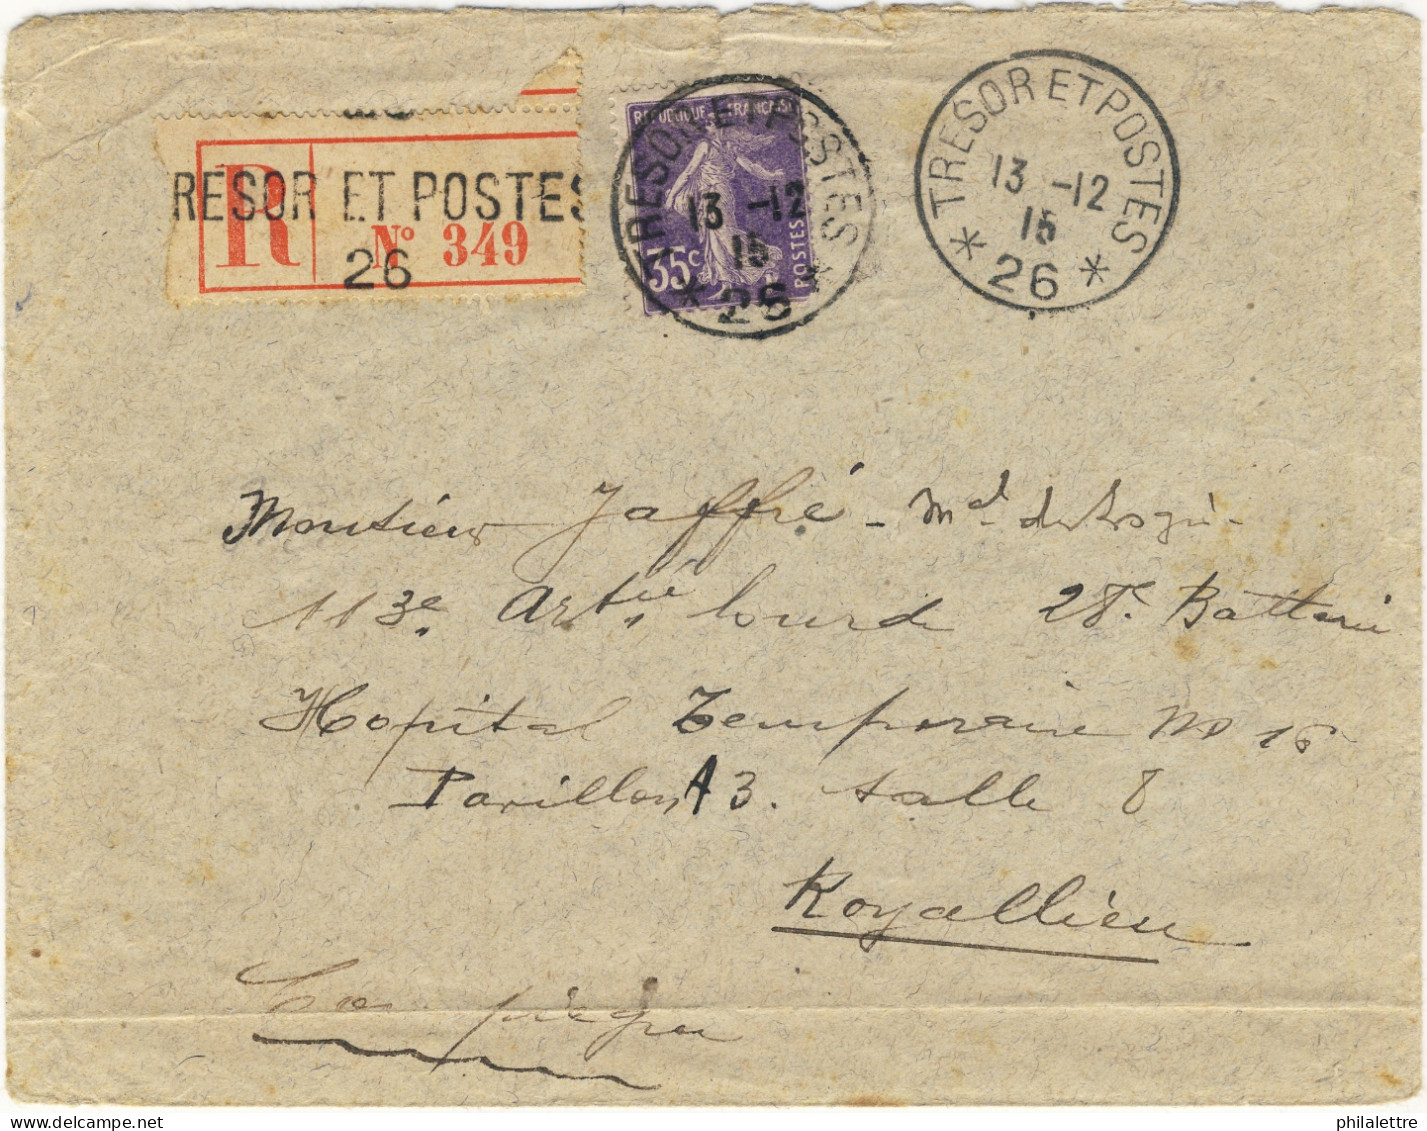 RESOR ET POSTES
R Nº 349
26
REPUBLIQUE FRANCAISE
35c POSTES
TRESOR ET POSTES
13 -12
15
* 26 *
TRESOR ET POSTES
13 -12
15
* 26 *
Monsieur Jaffré - Mal des Logis -
113e Artie lourde 28e Batterie
Hopital Temporaire No 16
Pavillon A3. salle 8
Royallieu
Compiègne
philalettre